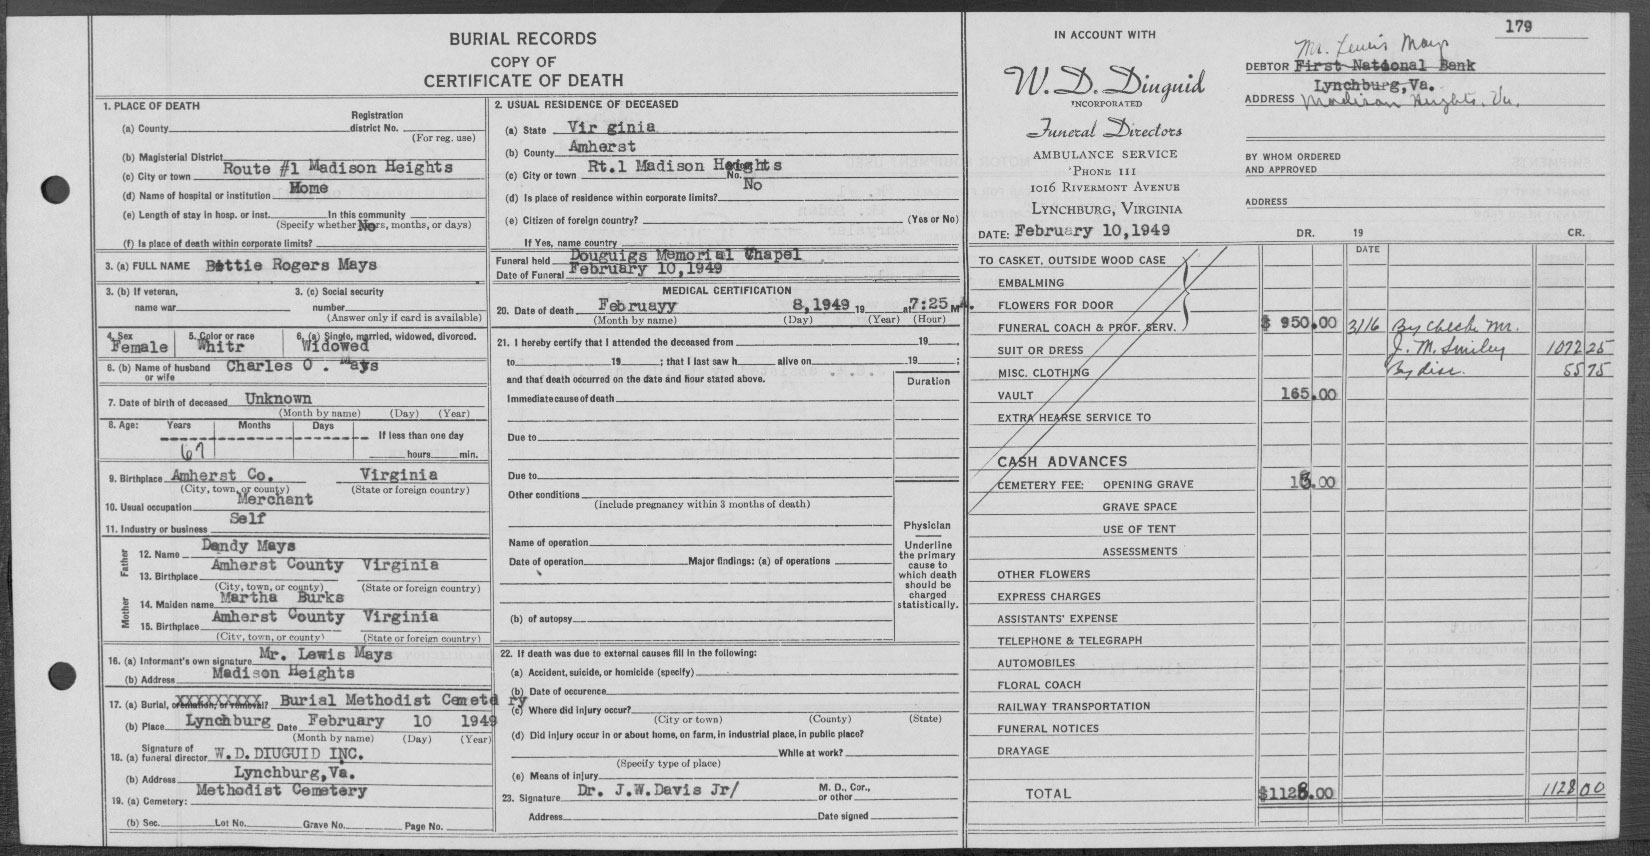 BURIAL RECORDS
COPY OF
CERTIFICATE OF DEATH
1. PLACE OF DEATH
Registration
(a) County district No.
(For reg. use)
(b) Magisterial District
(c) City or town Route #1 Madison Heights
(d) Name of hospital or institution Home
(e) Length of stay in hosp. or inst. In this community
(Specify whether years, months, or days)
No
(f) Is place of death within corporate limits?
3. (a) FULL NAME Bettie Rogers Mays
3. (b) If veteran, 3. (c) Social security
name war number
(Answer only if card is available)
4. Sex 5. Color or race 6. (a) Single, married, widowed, divorced.
Female Whitr Widowed
6. (b) Name of husband Charles O. Mays
or wife
7. Date of birth of deceased Unknown
(Month by name) (Day) (Year)
8. Age: Years Months Days
If less than one day
67 hours min.
9. Birthplace Amherst Co. Virginia
(City, town, or county) (State or foreign country)
10. Usual occupation Merchant
11. Industry or business Self
Father
12. Name Dandy Mays
13. Birthplace Amherst County Virginia
(City, town, or county) (State or foreign country)
Mother
14. Maiden name Martha Burks
15. Birthplace Amherst County Virginia
(City, town, or county) (State or foreign country)
16. (a) Informant's own signature Mr. Lewis Mays
(b) Address Madison Heights
17. (a) Burial, cremation, or removal? XXXXXXXXX Burial Methodist Cemete ry
(b) Place Lynchburg Date February 10 1949
(Month by name) (Day) (Year)
Signature of
18. (a) funeral director W.D.DIUGUID INC.
(b) Address Lynchburg,Va.
19. (a) Cemetery: Methodist Cemetery
(b) Sec. Lot No. Grave No. Page No.
2. USUAL RESIDENCE OF DECEASED
(a) State Vir ginia
(b) County Amherst
(c) City or town Rt.1 Madison Heights
No.
(d) Is place of residence within corporate limits? No
(e) Citizen of foreign country? (Yes or No)
If Yes, name country
Funeral held Douguigs Memorial Chapel
Date of Funeral February 10,1949
MEDICAL CERTIFICATION
20. Date of death Februayy 8,1949 19 at 7:25 M A.
(Month by name) (Day) (Year) (Hour)
21. I hereby certify that I attended the deceased from 19
to 19 ; that I last saw h alive on 19 ;
and that death occurred on the date and hour stated above. Duration
Immediate cause of death
Due to
Due to
Other conditions
(include pregnancy within 3 months of death)
Physician
Underline
the primary
cause to
which death
should be
charged
statistically.
Name of operation
Date of operation Major findings: (a) of operations
(b) of autopsy
22. If death was due to external causes fill in the following:
(a) Accident, suicide, or homicide (specify)
(b) Date of occurence
(c) Where did injury occur?
(City or town) (County) (State)
(d) Did injury occur in or about home, on farm, in industrial place, in public place?
While at work?
(Specify type of place)
(e) Means of injury
23. Signature Dr. J.W.Davis Jr/ M. D., Cor.,
or other
Address Date signed
179
IN ACCOUNT WITH
W. D. Diuguid
INCORPORATED
Funeral Directors
AMBULANCE SERVICE
'PHONE 111
1016 RIVERMONT AVENUE
LYNCHBURG, VIRGINIA
DATE: February 10,1949
Mr. Lewis Mays
DEBTOR First National Bank
Lynchburg,Va.
ADDRESS Madison Heights, Va.
BY WHOM ORDERED
AND APPROVED
ADDRESS
DR. 19 CR.
DATE
TO CASKET, OUTSIDE WOOD CASE
EMBALMING
FLOWERS FOR DOOR
FUNERAL COACH & PROF. SERV. $ 950.00 3/16 By Check Mr.
SUIT OR DRESS J. M. Smiley 1072 25
MISC. CLOTHING By disc. 55 75
VAULT 165.00
EXTRA HEARSE SERVICE TO
CASH ADVANCES
CEMETERY FEE: OPENING GRAVE 13.00
GRAVE SPACE
USE OF TENT
ASSESSMENTS
OTHER FLOWERS
EXPRESS CHARGES
ASSISTANTS' EXPENSE
TELEPHONE & TELEGRAPH
AUTOMOBILES
FLORAL COACH
RAILWAY TRANSPORTATION
FUNERAL NOTICES
DRAYAGE
TOTAL $1128.00 1128 00